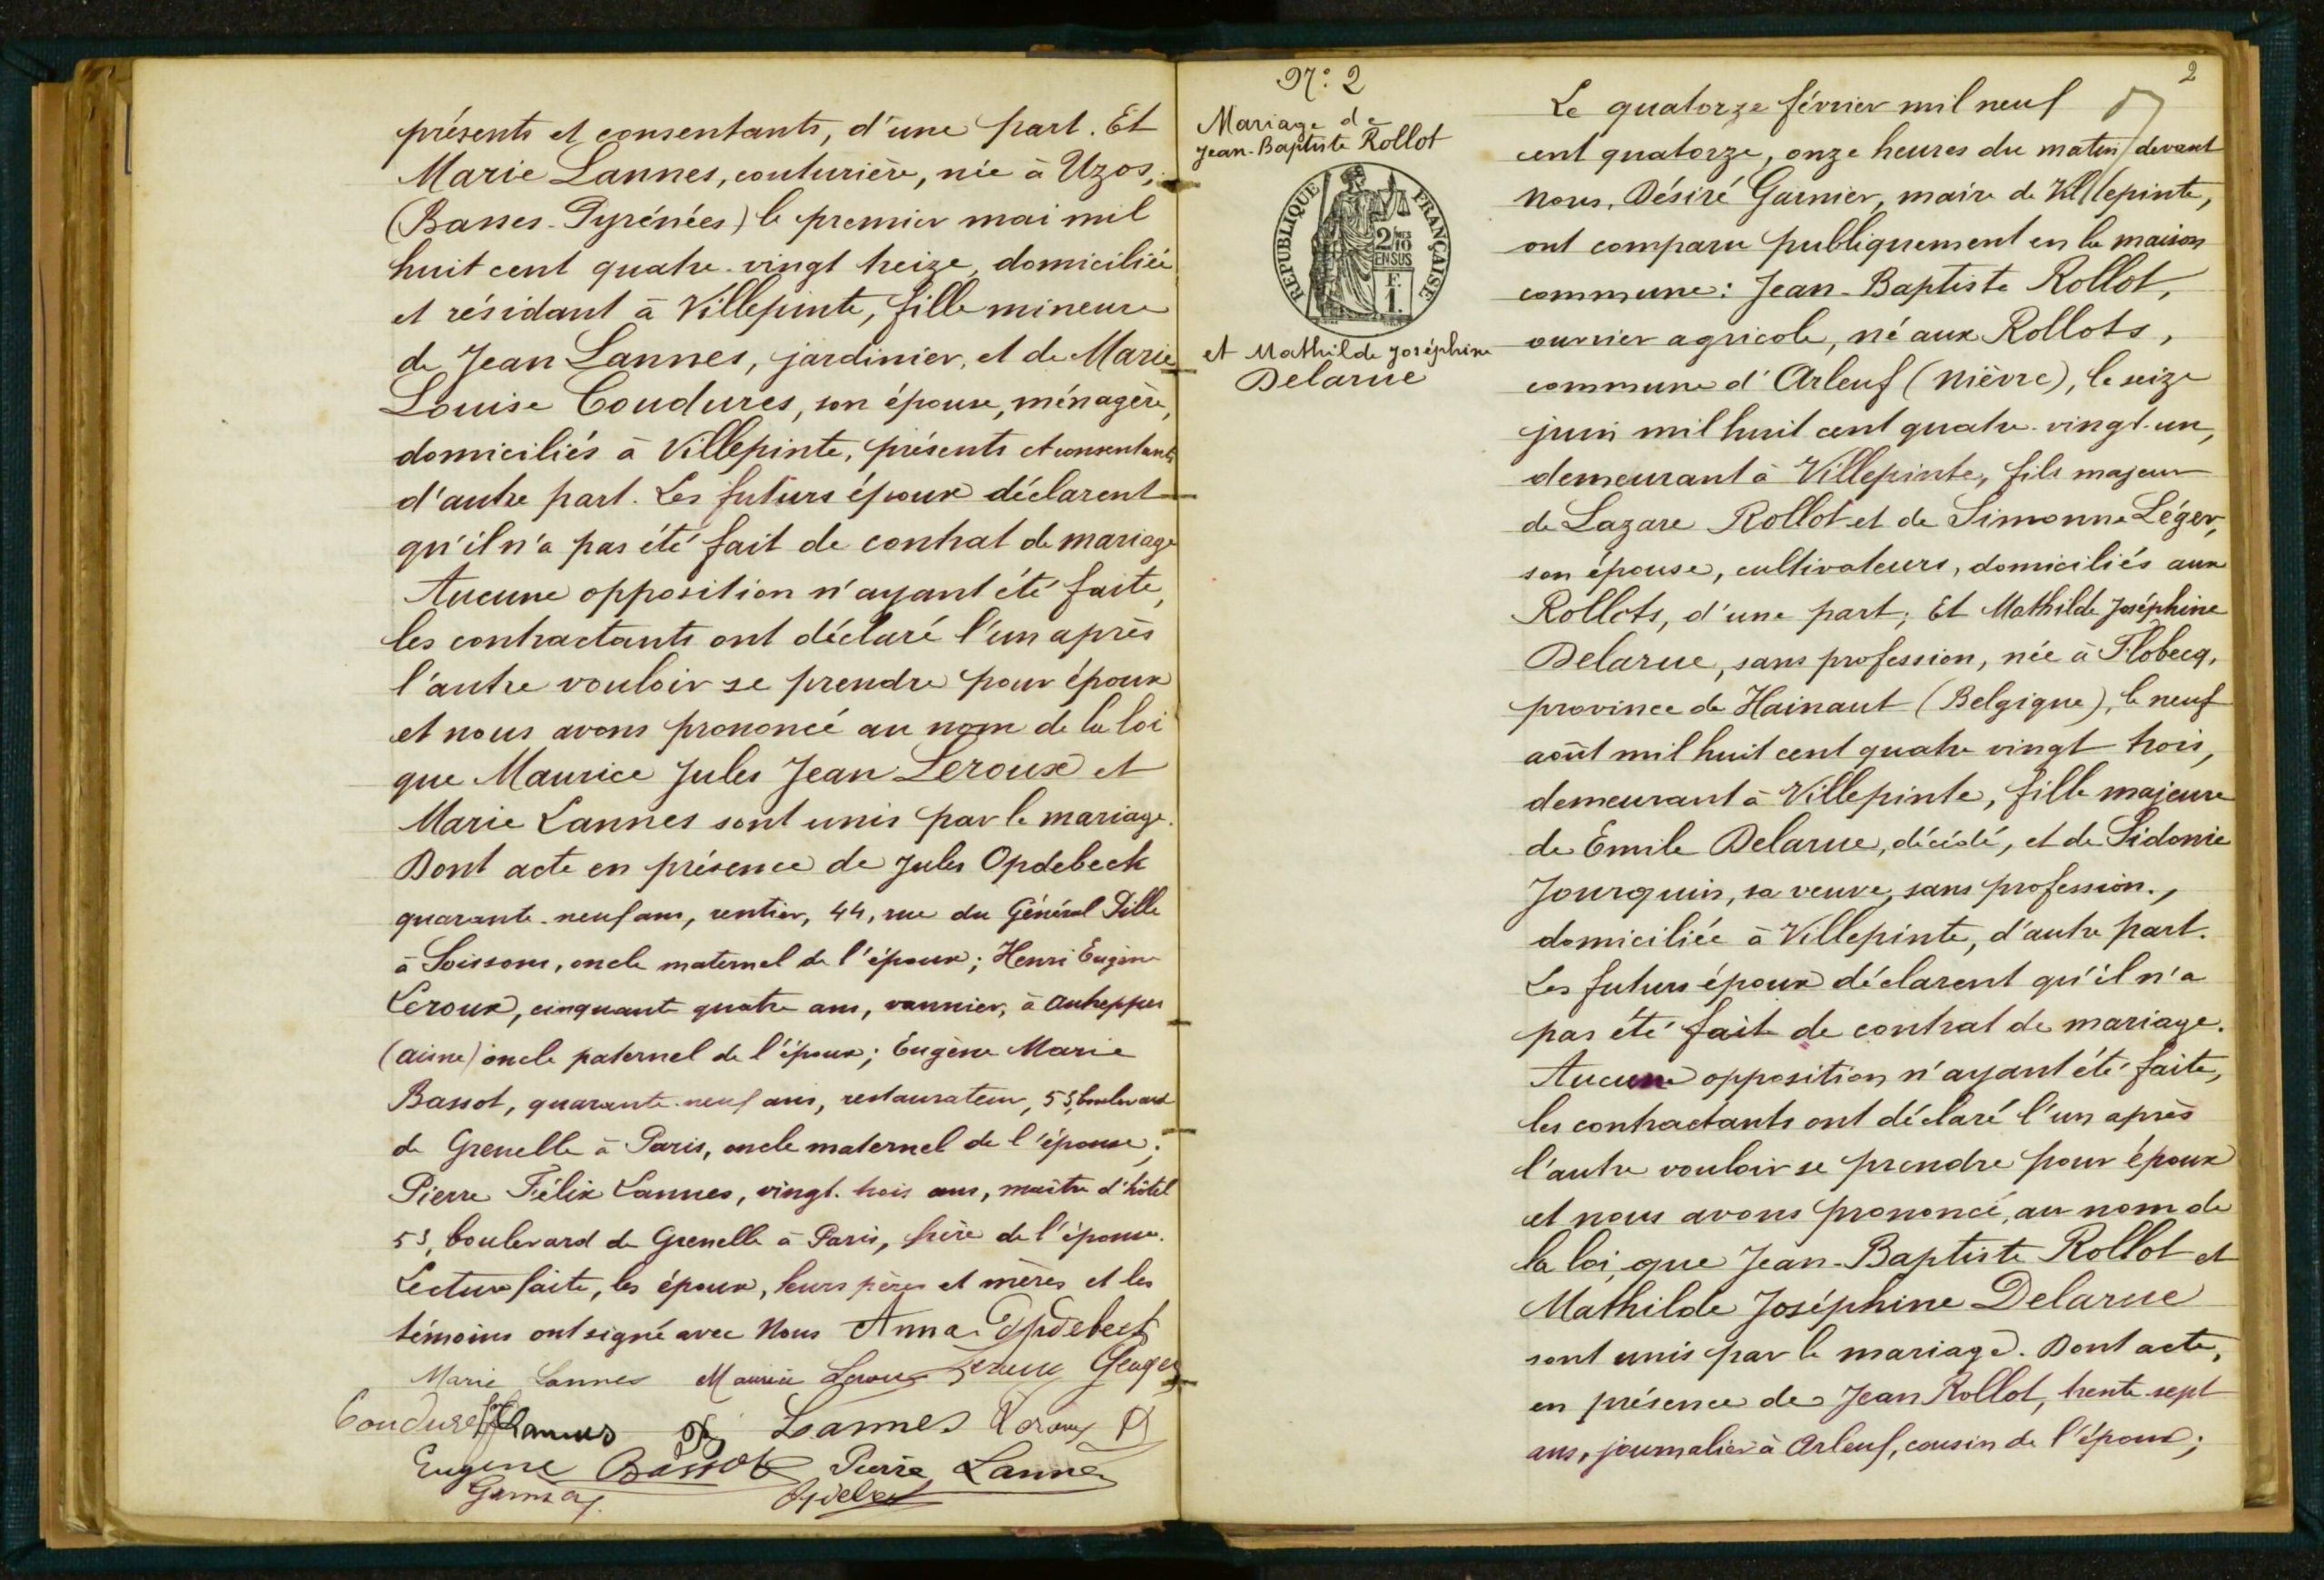 présents et consentants, d'une part. Et
Marie Lannes, couturière, née à Uzos,
(Basses-Pyrénées) le premier mai mil
huit cent quatre-vingt treize, domiciliée
et résidant à Villepinte, fille mineure
de Jean Lannes, jardinier, et de Marie
Louise Coudures, son épouse, ménagère,
domiciliés à Villepinte, présents et consentants
d'autre part. Les futurs époux déclarent
qu'il n'a pas été fait de contrat de mariage
Aucune opposition n'ayant été faite,
les contractants ont déclaré l'un après
l'autre vouloir se prendre pour époux
et nous avons prononcé au nom de la loi
que Maurice Jules Jean Leroux et
Marie Lannes sont unis par le mariage.
Dont acte en présence de Jules Opdebeck
quarante-neuf ans, rentier, 44, rue du Général Pille
à Soissons, oncle maternel de l'époux; Henri Eugène
Leroux, cinquante quatre ans, vannier, à Autreppes
(Aisne) oncle paternel de l'époux; Eugène Marie
Bassot, quarante-neuf ans, restaurateur, 53, boulevard
de Grenelle à Paris, oncle maternel de l'épouse;
Pierre Félix Lannes, vingt-trois ans, maître d'hôtel
53, boulevard de Grenelle à Paris, frère de l'épouse.
Lecture faite, les époux, leurs pères et mères et les
témoins ont signé avec Nous Anna Opdebeck
Marie Lannes Maurice Leroux Leroux Georges
Coudures Lannes Lannes Leroux
Eugène Bassot Pierre Lannes
Garnier Opdebeck
N°: 2
Mariage de
Jean-Baptiste Rollot
RÉPUBLIQUE FRANÇAISE
2/10
EN SUS
F.
1.
et Mathilde Joséphine
Delarue
2
Le quatorze février mil neuf
cent quatorze, onze heures du matin devant
Nous, Désiré Garnier, maire de Villepinte,
ont comparu publiquement en la maison
commune: Jean-Baptiste Rollot,
ouvrier agricole, né aux Rollots,
commune d'Arleuf (Nièvre), le seize
juin mil huit cent quatre-vingt-un,
demeurant à Villepinte, fils majeur
de Lazare Rollot et de Simonne Léger,
son épouse, cultivateurs, domiciliés aux
Rollots, d'une part; Et Mathilde Joséphine
Delarue, sans profession, née à Flobecq,
province de Hainaut (Belgique), le neuf
août mil huit cent quatre vingt trois,
demeurant à Villepinte, fille majeure
de Emile Delarue, décédé, et de Sidonie
Jourquin, sa veuve, sans profession.,
domiciliée à Villepinte, d'autre part.
Les futurs époux déclarent qu'il n'a
pas été fait de contrat de mariage.
Aucune opposition n'ayant été faite,
les contractants ont déclaré l'un après
l'autre vouloir se prendre pour époux
et nous avons prononcé, au nom de
la loi, que Jean-Baptiste Rollot et
Mathilde Joséphine Delarue
sont unis par le mariage. Dont acte,
en présence de Jean Rollot, trente-sept
ans, journalier à Arleuf, cousin de l'époux;